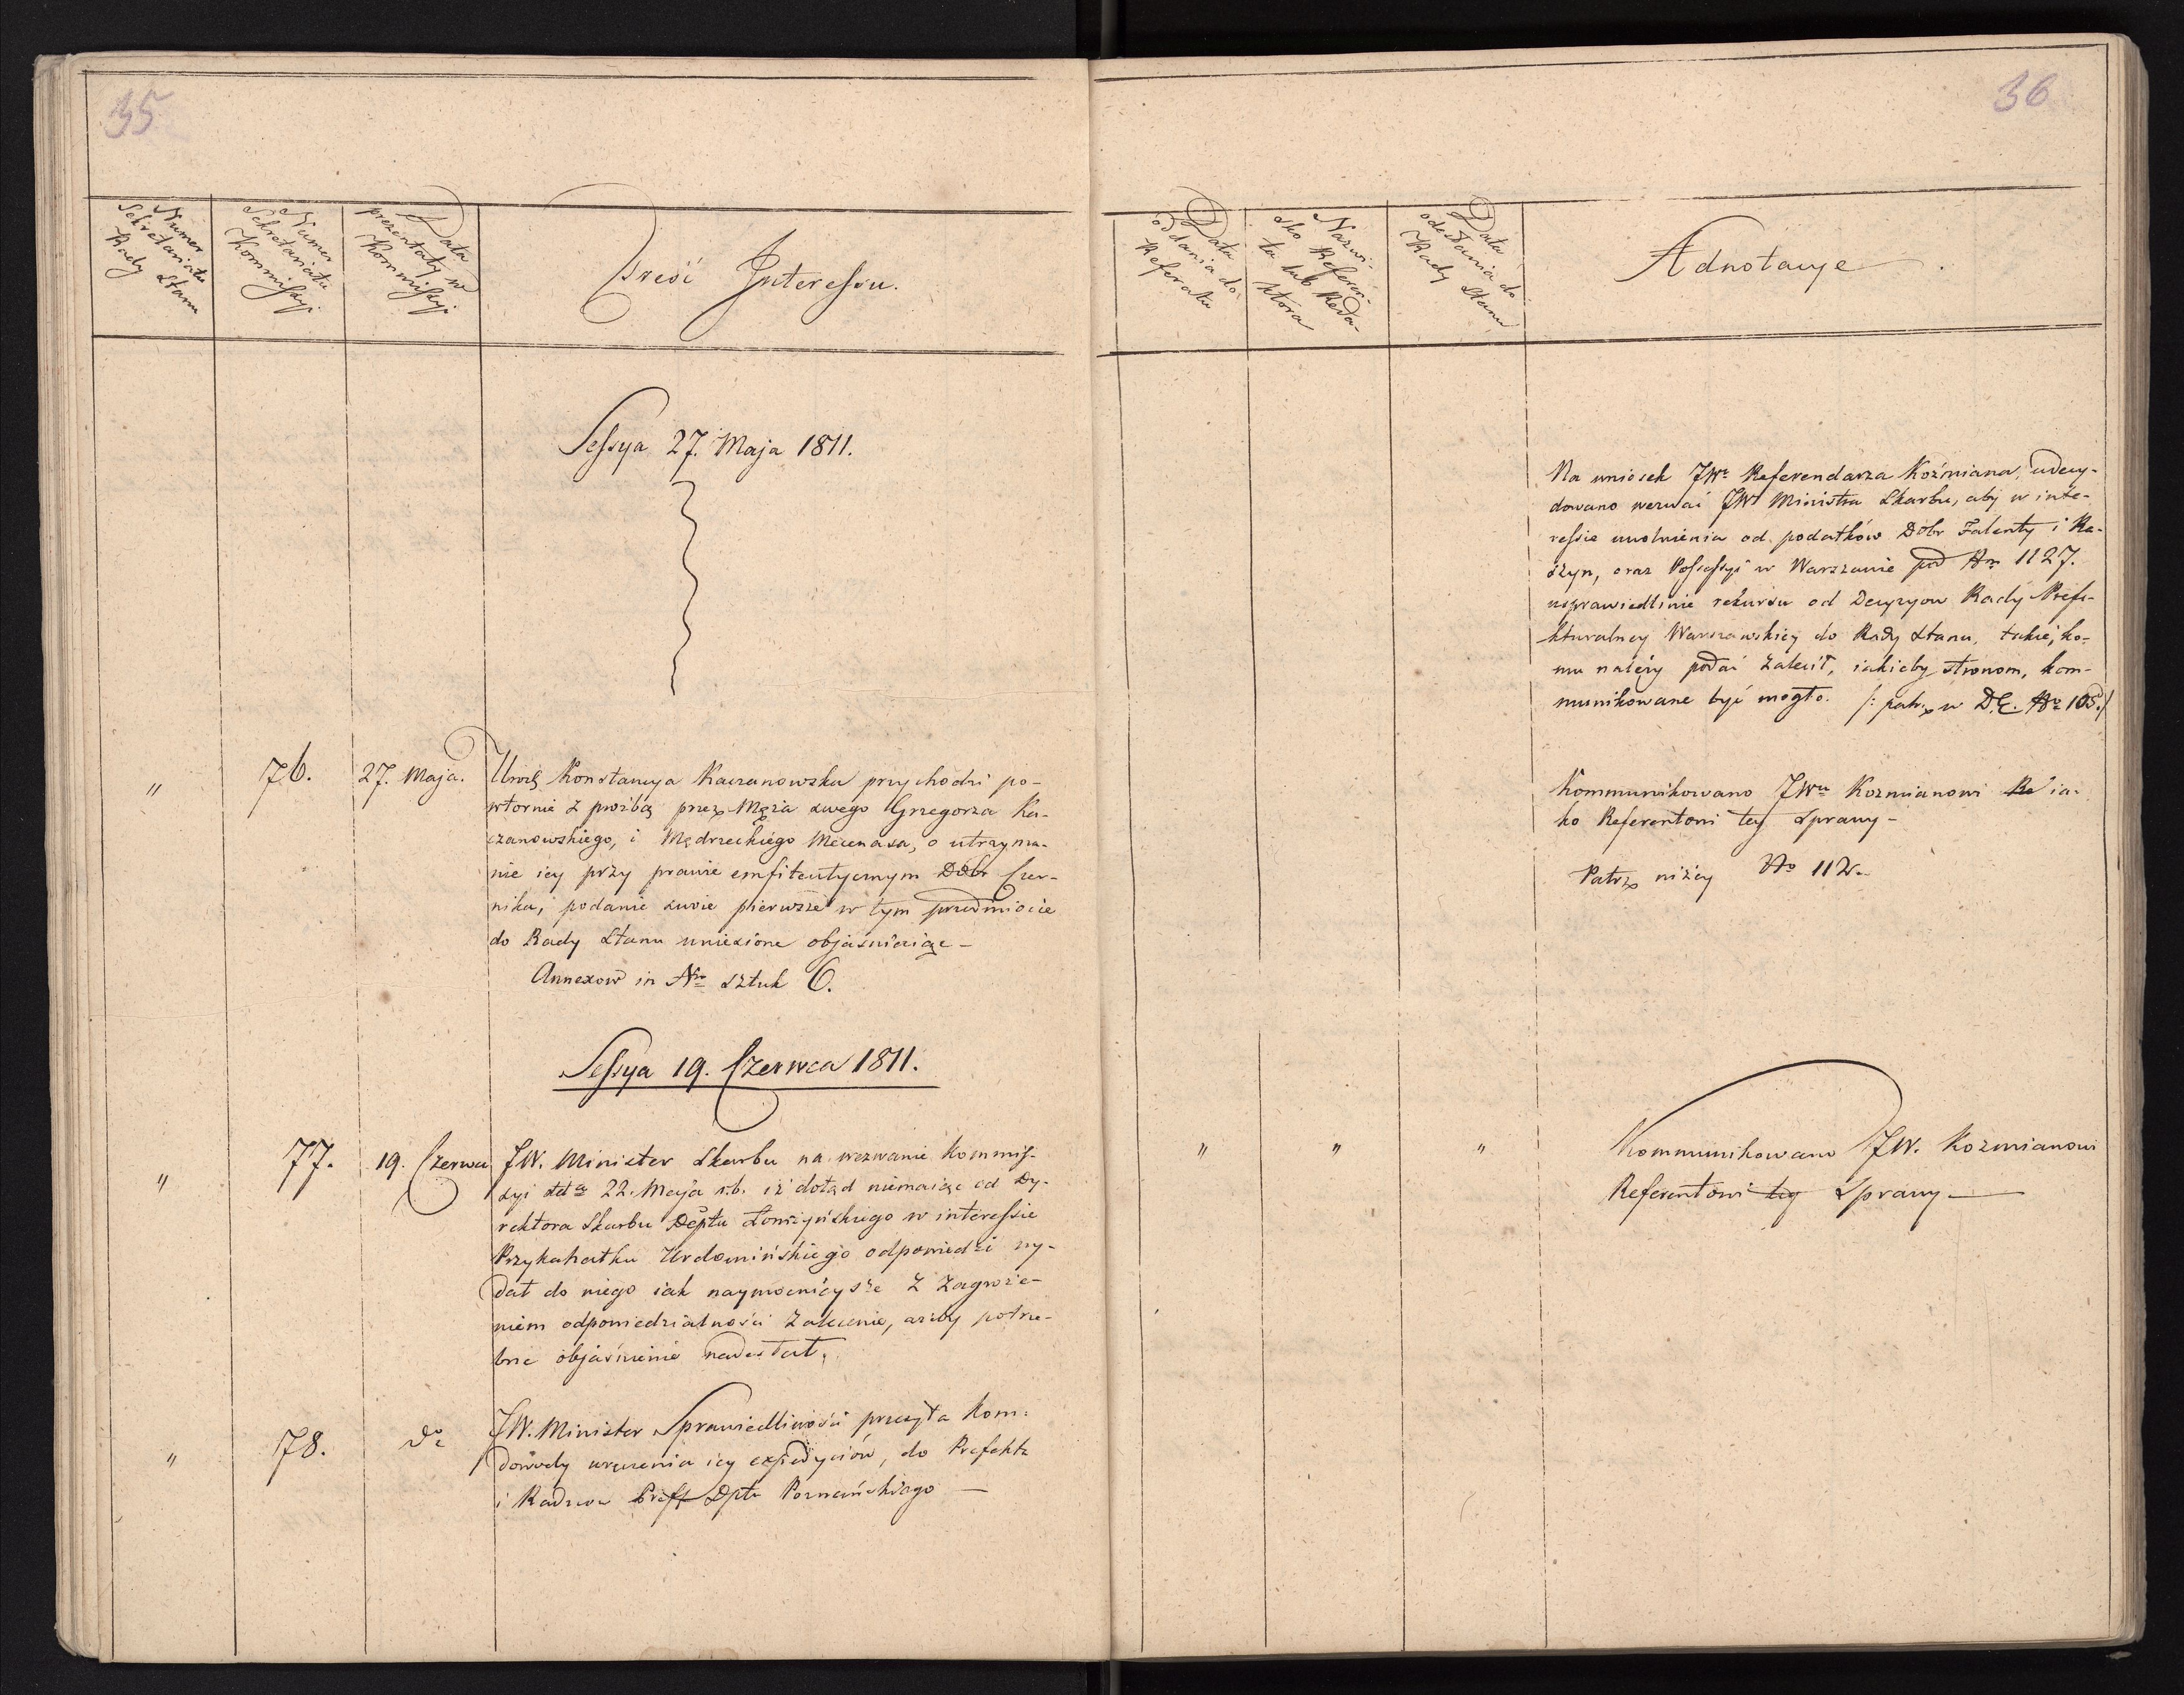 35
Numer Sekretariatu Rady Stanu
Numer Sekretariatu Kommissyi
Data prezentaty w Kommissyi
Treść Interessu.
Sessya 27. Maja 1811.
" 76. 27. Maja. Urodz. Konstancya Kaczanowska przychodzi po-
wtornie z proźbą przez Męża swego Grzegorza Ka-
czanowskiego, i Mędrzeckiego Mecenasa, o utrzyma-
nie iey przy prawie emfiteutycznym Dóbr Czer-
nika, podanie swoie pierwsze w tym przedmiocie
do Rady Stanu uniesione objaśniaiąc –
Annexow in Nro sztuk 6.
Sessya 19. Czerwca 1811.
" 77. 19. Czerwca JW. Minister Skarbu na wezwanie Kommis-
syi dtd 22. Maja r.b. iż dotąd niemaiąc od Dy-
rektora Skarbu Deptu Łomżyńskiego w interessie
Przykahałku Urdomińskiego odpowiedzi wy-
dał do niego iak naymocnieysze z zagroże-
niem odpowiedzialności zalecenie, ażeby potrze-
bne objaśnienie nadesłał.
" 78. do JW. Minister Sprawiedliwości przesyła Kom:
dowody wręczenia iey expedyciów, do Prefekta
i Radzcow Pref Dptu Poznańskiego –
36
Data oddania do Referatu
Nazwi-
sko Referen-
ta lub Reda-
ktora
Data odesłania do Rady Stanu
Adnotacye
Na wniosek JWo Referendarza Koźmiana, udecy-
dowano wezwać JW Ministra Skarbu, aby w inte-
ressie uwolnienia od podatków Dóbr Falenty i Ra-
szyn, oraz Possessyi w Warszawie pod No 1127.
usprawiedlinie rekursu od Decyzyow Rady Prefe-
kturalney Warszawskiey do Rady Stanu, takie, ko-
mu należy podać zalecił, iakieby stronom, kom-
munikowane być mogło. /: patrz w D.E. No 105 :/
Kommunikowano JWu Kozmianowi Re ia-
ko Referentowi tey Sprawy –
Patrz niżey No 112.
" " " Kommunikowano JW. Kozmianowi
Referentowi tey Sprawy –